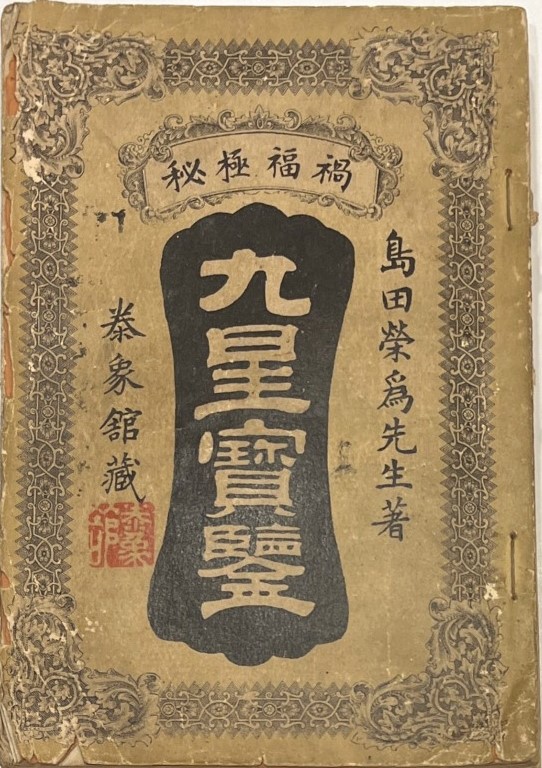 禍福極秘
島田榮爲先生著
九星寶鑒
泰象舘藏